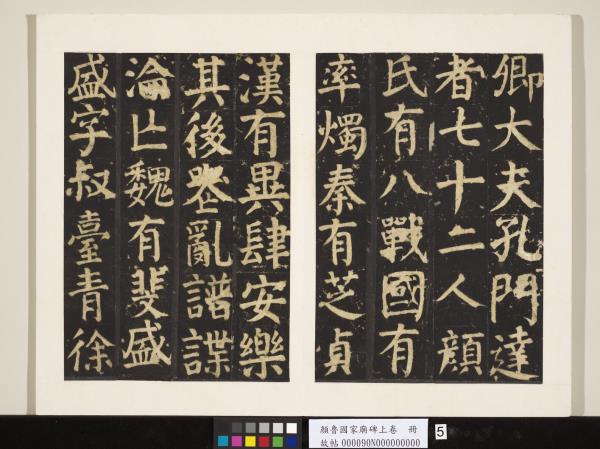 卿大夫孔門達
者七十二人顏
氏有八戰國有
率燭秦有芝貞
漢有異肆安樂
其後喪亂譜諜
淪亡魏有斐盛
盛字叔臺青徐
顏魯國家廟碑上卷 冊
故帖000090N000000000
5